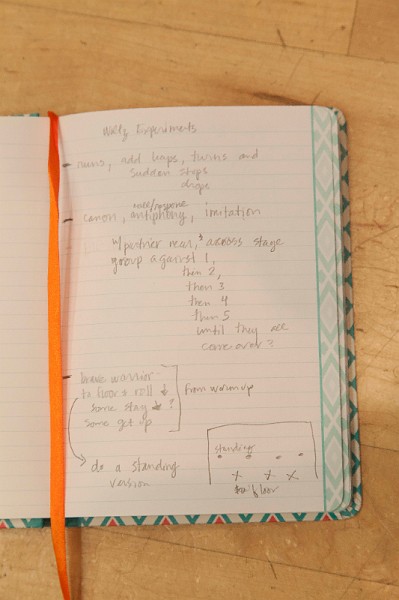 Experiments
- runs, add leaps, turns and
sudden stops
drops
- canon, antiphony, imitation
w/partner near, & across stage
group against 1,
then 2,
then 3
then 4
then 5
until they all
come over?
- warrior
to floor & roll ↓
some stay ↓ ?
some get up
from warmup
do a standing
version
standing
x x x